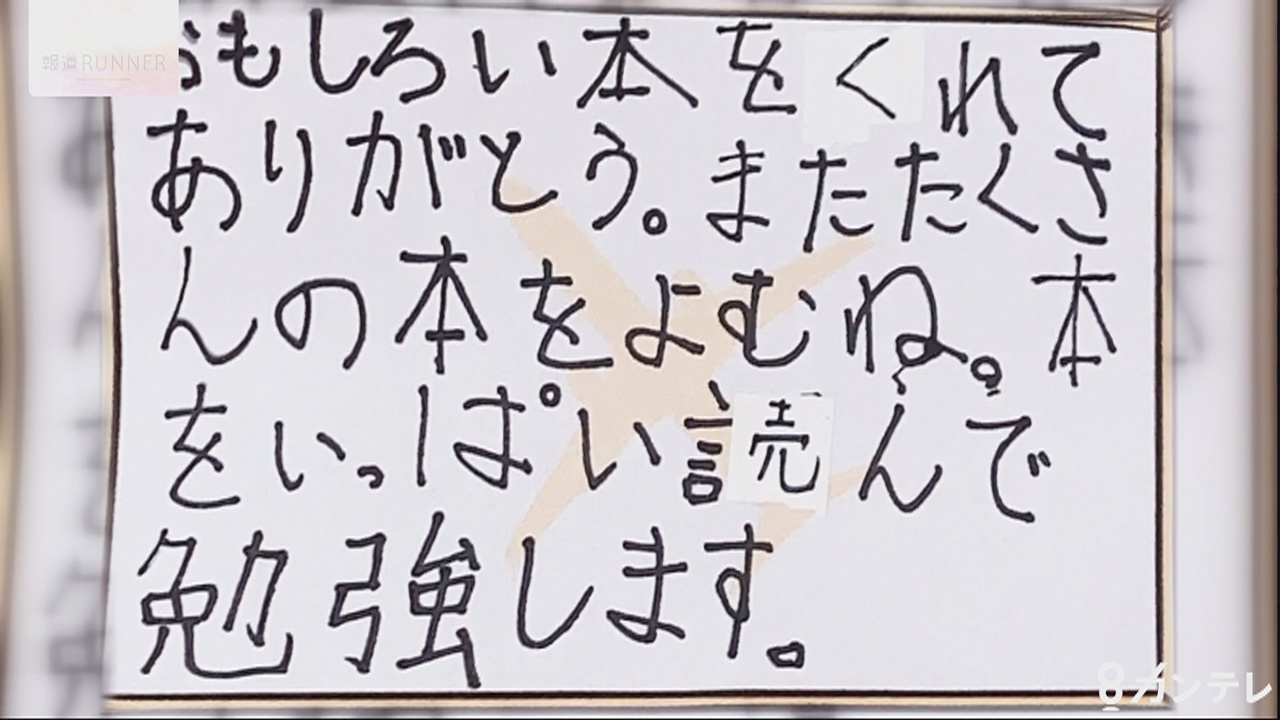 報道RUNNER
おもしろい本をくれて
ありがとう。またたくさ
んの本をよむね。本
をいっぱい読んで
勉強します。
8カンテレ